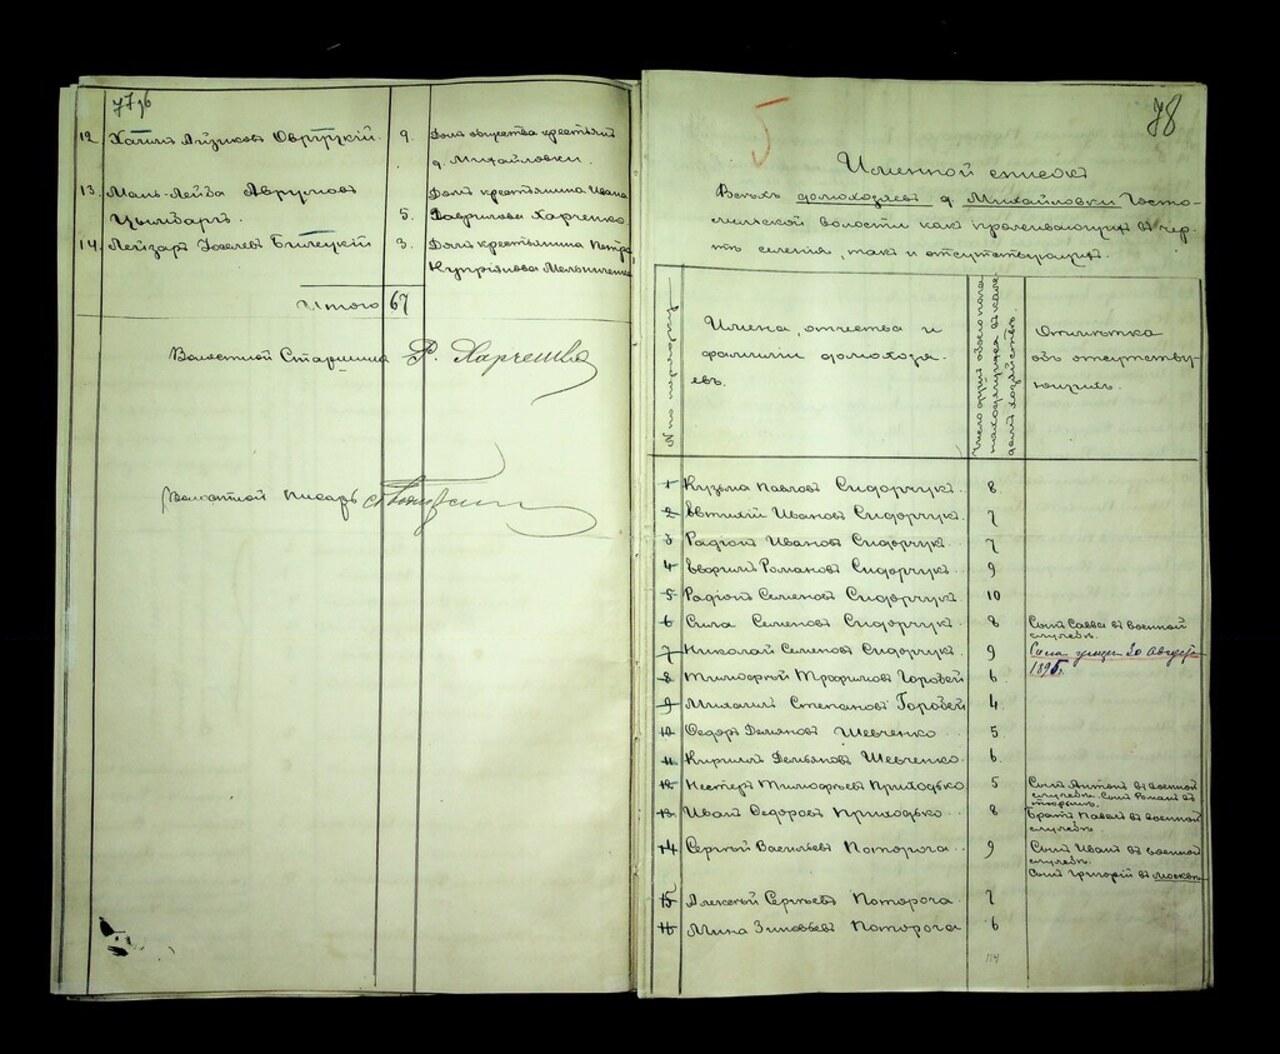 77 об
12. Хаимъ Айзиковъ Овруцкій. 9. Домъ общества крестьянъ
д. Михайловки.
13. Мань-Лейба Аврумовъ Домъ крестьянина Ивана
Цымбаръ. 5. Гаврилова Харченко
14. Лейзаръ Іоселевъ Билецкій 3. Домъ крестьянина Петра
Купріянова Мельниченка
Итого 67
Волостной Старшина Р. Харченко
Волостной писарь
5
78
Именной списокъ
Всѣхъ домохозяевъ д. Михайловки Госто-
мельской волости какъ проживающихъ въ чер-
тѣ селенія, такъ и отсутствующихъ.
№ по порядку
Имена, отчества и
фамиліи домохозя-
евъ.
Число душъ обоего пола
находящихся въ каж-
домъ хозяйствѣ.
Отмѣтка
объ отсутству-
ющихъ.
1 Кузьма Павловъ Сидорчукъ. 8.
2 Евтихій Ивановъ Сидорчукъ. 7
3 Радіонъ Ивановъ Сидорчукъ. 7
4 Романовъ Сидорчукъ. 9
5 Радіонъ Семеновъ Сидорчукъ. 10
6 Сила Семеновъ Сидорчукъ. 8 Сынъ Савва въ военной
службѣ.
7 Николай Семеновъ Сидорчукъ. 9 Сила умеръ 20 Августа
1895г.
8 Тимофѣй Трофимовъ Горобей 6.
9 Михаилъ Степановъ Горобей 4.
10 Федоръ Демяновъ Шевченко 5.
11 Кириллъ Демьяновъ Шевченко. 6.
12 Нестеръ Тимофѣевъ Приходько 5 Сынъ Антонъ въ военной
службѣ. Сынъ Романъ въ
тюрьмѣ.
13 Иванъ Федоровъ Приходько 8 Братъ Павелъ въ военной
службѣ.
14 Сергѣй Васильевъ Поторога. 9 Сынъ Иванъ въ военной
службѣ.
Сынъ Григорій въ Москвѣ
15 Алексѣй Сергѣевъ Поторога. 7
16 Мина Зиновьевъ Поторога 6
114